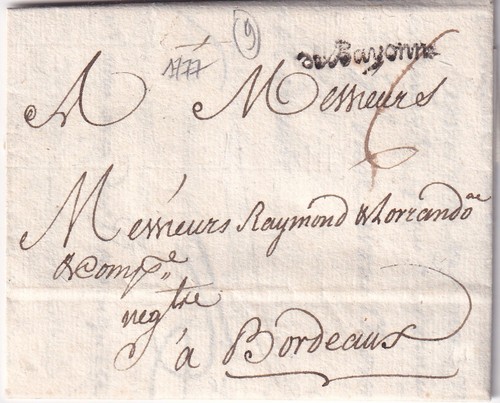 9
1777
de Bayonne
6
A Messieurs
Messieurs Raymond & Lorrando
& Comp.e
neg tre
à Bordeaux